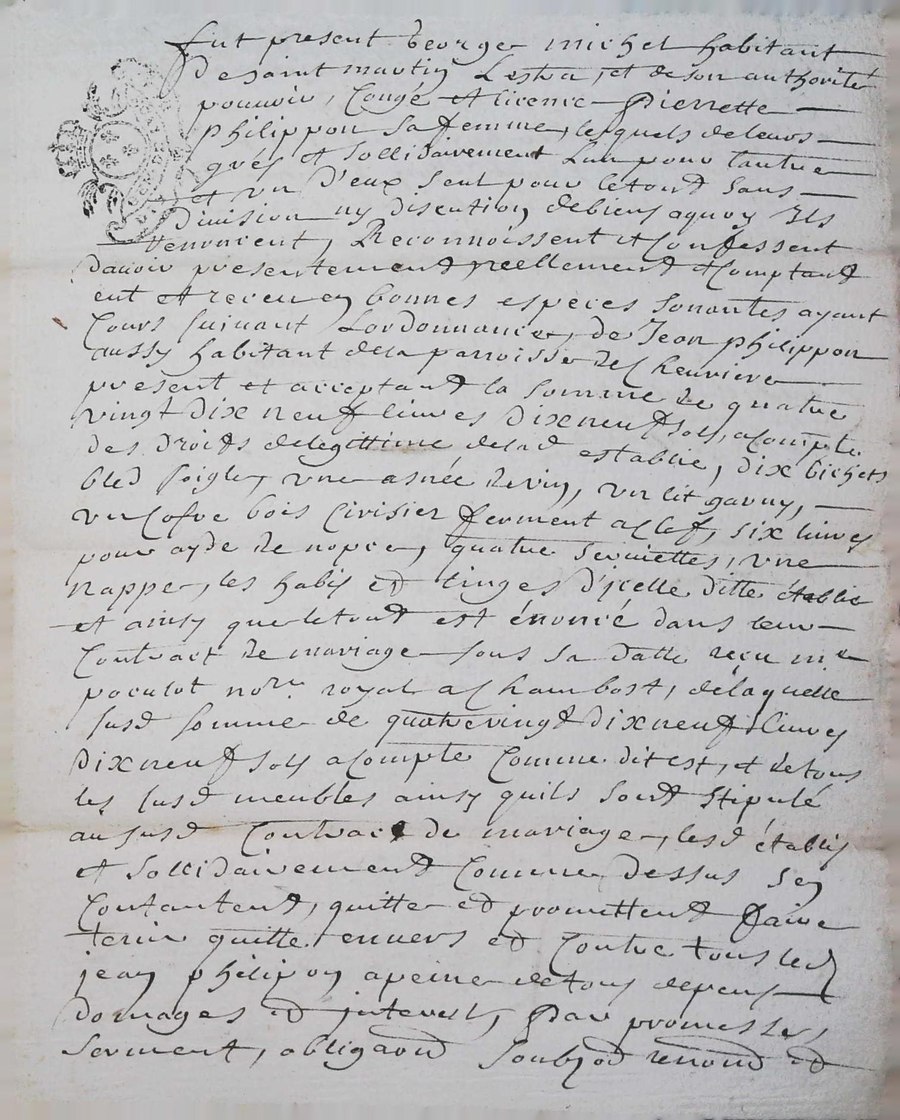 fut present George michel habitant
de saint martin Lestra, et de son authorité
pouvoir, Congé et licence Pierrette
philippon sa femme, lesquels de leurs
grés et sollidairement Lun pour lautre
et un d'eux seul pour le tout sans
Division ny discution de biens aquoy Ils
renoncent, Reconnoissent et Confessent
davoir presentement reellement et Comptant
eut et receu en bonnes especes sonantes ayant
Cours suivant Lordonnance, de Jean philippon
aussy habitant de la parroisse de Cheuriere
present et acceptant la somme de quatre
vingt dix neuf livres dixneuf sols, acompte
des droits de legittime de lad establie, dix bichets
bled soigle, une asnée de vin, un lit garny,
un Cofre bois Cirisier ferment a Clef, six livres
pour ayde de nopce, quatre serviettes, une
nappe, les habis et linges d'icelle ditte établie
et ainsy que le tout est énoncé dans leur
Contract de mariage sous sa datte reçu me
poculot nore royal a Chambost, de laquelle
susd somme de quatrevingt dixneuf livres
dixneuf sols acompte Comme dit est, et de tous
les susd meubles ainsy quils sont stipulé
au susd Contract de mariage, lesd établis
et sollidairement Comme dessus sen
Contantent, quitte et promettent faire
tenir quitte envers et Contre tous led
jean philipon apeine de tous depens
domages et interest, Par promesse,
serment, obligaon soubzon renon et